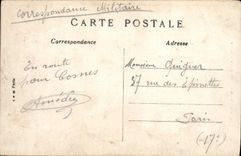 Correspondance Militaire
CARTE POSTALE
Correspondance
Adresse
En route
pour Cosnes
Amédée
Monsieur
87 rue des Epinettes
Paris
(17e)